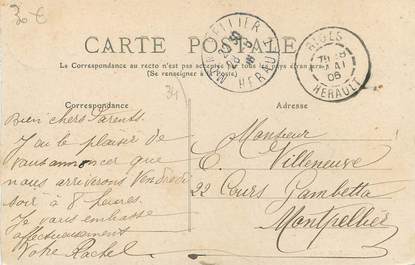 30 €
CARTE POSTALE
La Correspondance au recto n'est pas acceptée par tous les pays étrangers
(Se renseigner à la Poste)
MONTPELLIER
HERAULT
HERAULT
Correspondance
Adresse
Bien chers Parents.
J'ai le plaisir de
vous annoncer que
nous arriverons Vendredi
soir à 8 heures.
Je vous embrasse
affectueusement
Votre Rachel
Monsieur
E. Villeneuve
22 Cours Gambetta
Montpellier